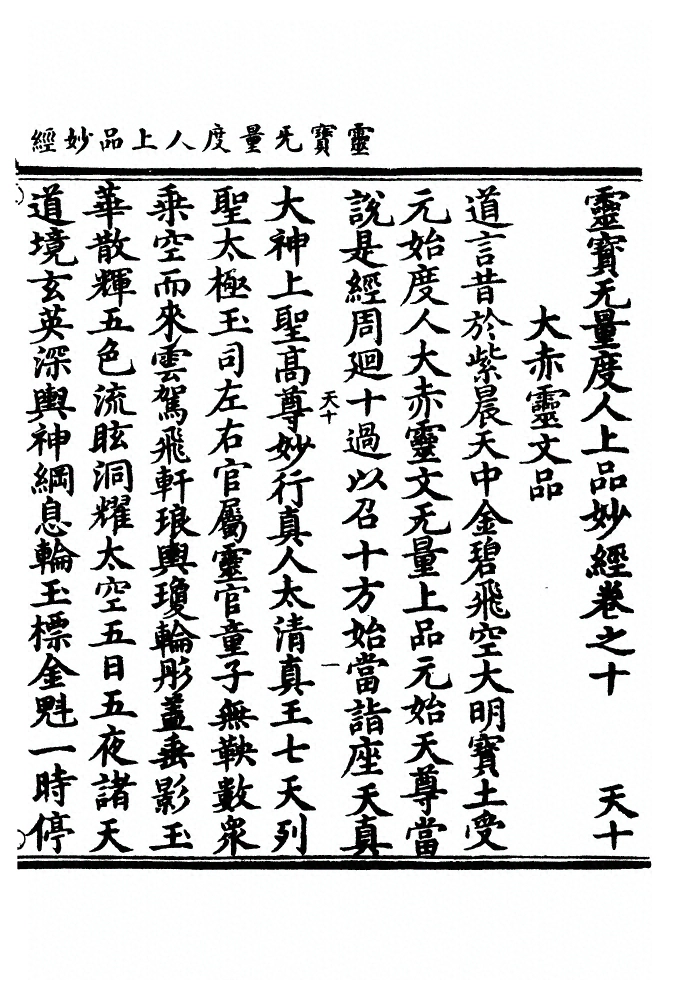 靈寶旡量度人上品妙經
靈寶旡量度人上品妙經卷之十 天十
大赤靈文品
道言昔於紫晨天中金碧飛空大明寶土受
元始度人大赤靈文旡量上品元始天尊當
說是經周廻十過以召十方始當詣座天真
天十 一
大神上聖高尊妙行真人太清真王七天列
聖太極玉司左右官屬靈官童子無鞅數衆
乘空而來雲駕飛軒琅輿瓊輪彤蓋垂影玉
華散輝五色流昡洞耀太空五日五夜諸天
道境玄英深輿神綱息輪玉標金魁一時停